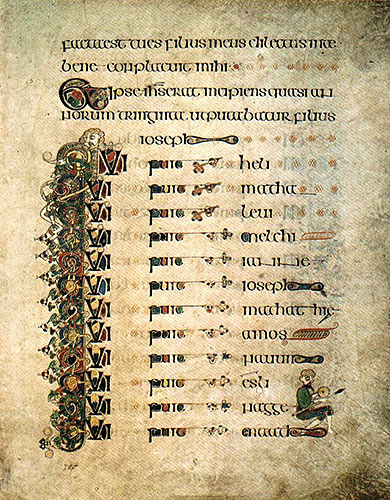 facta est tu es filius meus dilectus in te
bene conplacuit mihi
Et ipse ihs erat incipiens quasi an
norum triginta ut putabatur filius
ioseph
QUI fuit heli
QUI fuit matha
QUI fuit levi
QUI fuit melchi
QUI fuit
QUI fuit ioseph
QUI fuit mathathie
QUI fuit amos
QUI fuit nauum
QUI fuit esli
QUI fuit nagge
QUI fuit maath